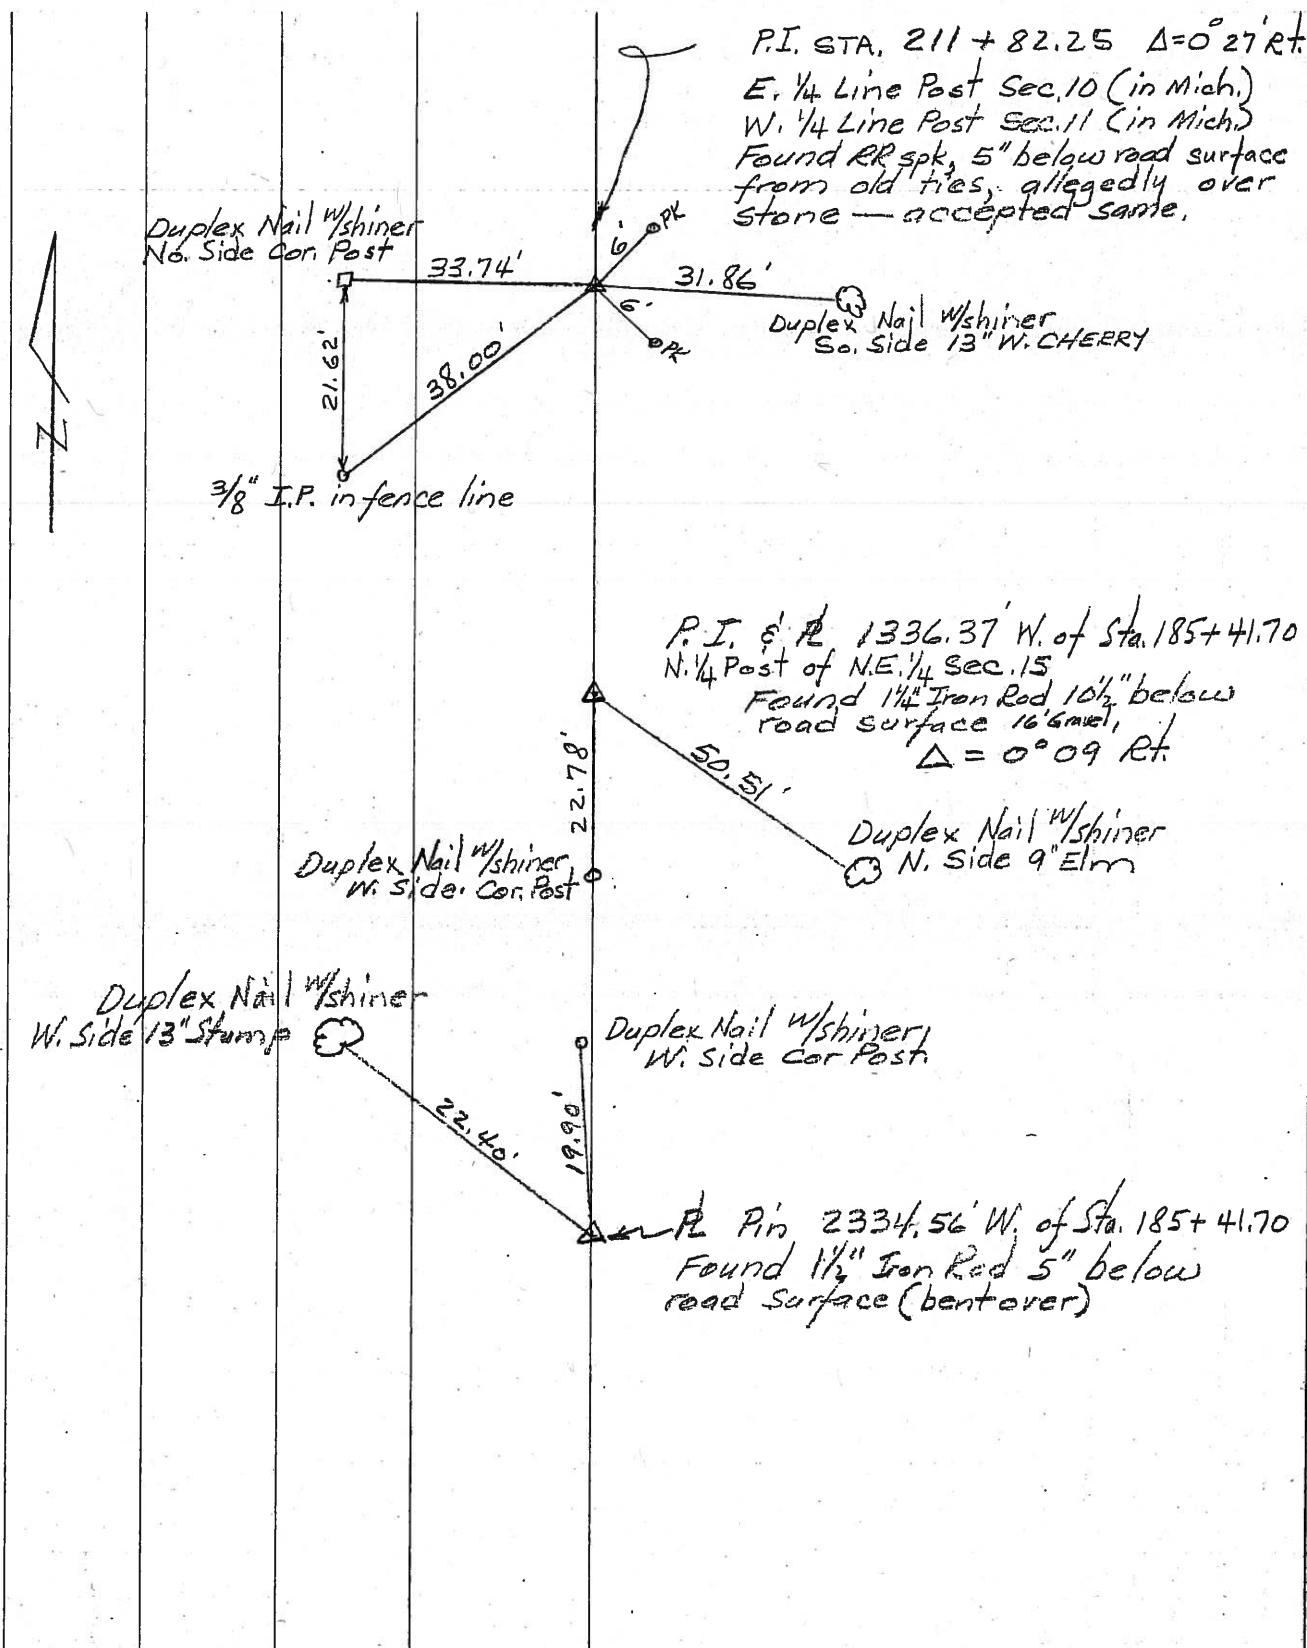 P.I. STA. 211 + 82.25 Δ=0°27' Rt.
E. 1/4 Line Post Sec. 10 (in Mich.)
W. 1/4 Line Post Sec. 11 (in Mich.)
Found RR spk, 5" below road surface
from old ties, allegedly over
stone — accepted same.
Duplex Nail w/shiner
No. Side Cor. Post
33.74'
6'
PK
31.86'
6'
PK
Duplex Nail w/shiner
So. Side 13" W. CHERRY
21.62'
38.00'
N
3/8" I.P. in fence line
P.I. & PL 1336.37' W. of Sta. 185+41.70
N. 1/4 Post of N.E. 1/4 Sec. 15
Found 1 1/4" Iron Rod 10 1/2" below
road surface 16' Gravel,
Δ = 0°09 Rt.
22.78'
50.51'
Duplex Nail w/shiner
W. Side. Cor. Post
Duplex Nail w/shiner
N. Side 9" Elm
Duplex Nail w/shiner
W. Side 13" Stump
Duplex Nail w/shiner,
W. Side Cor Post.
22.40'
19.90'
PL Pin 2334.56' W. of Sta. 185+41.70
Found 1 1/2" Iron Rod 5" below
road Surface (bent over)